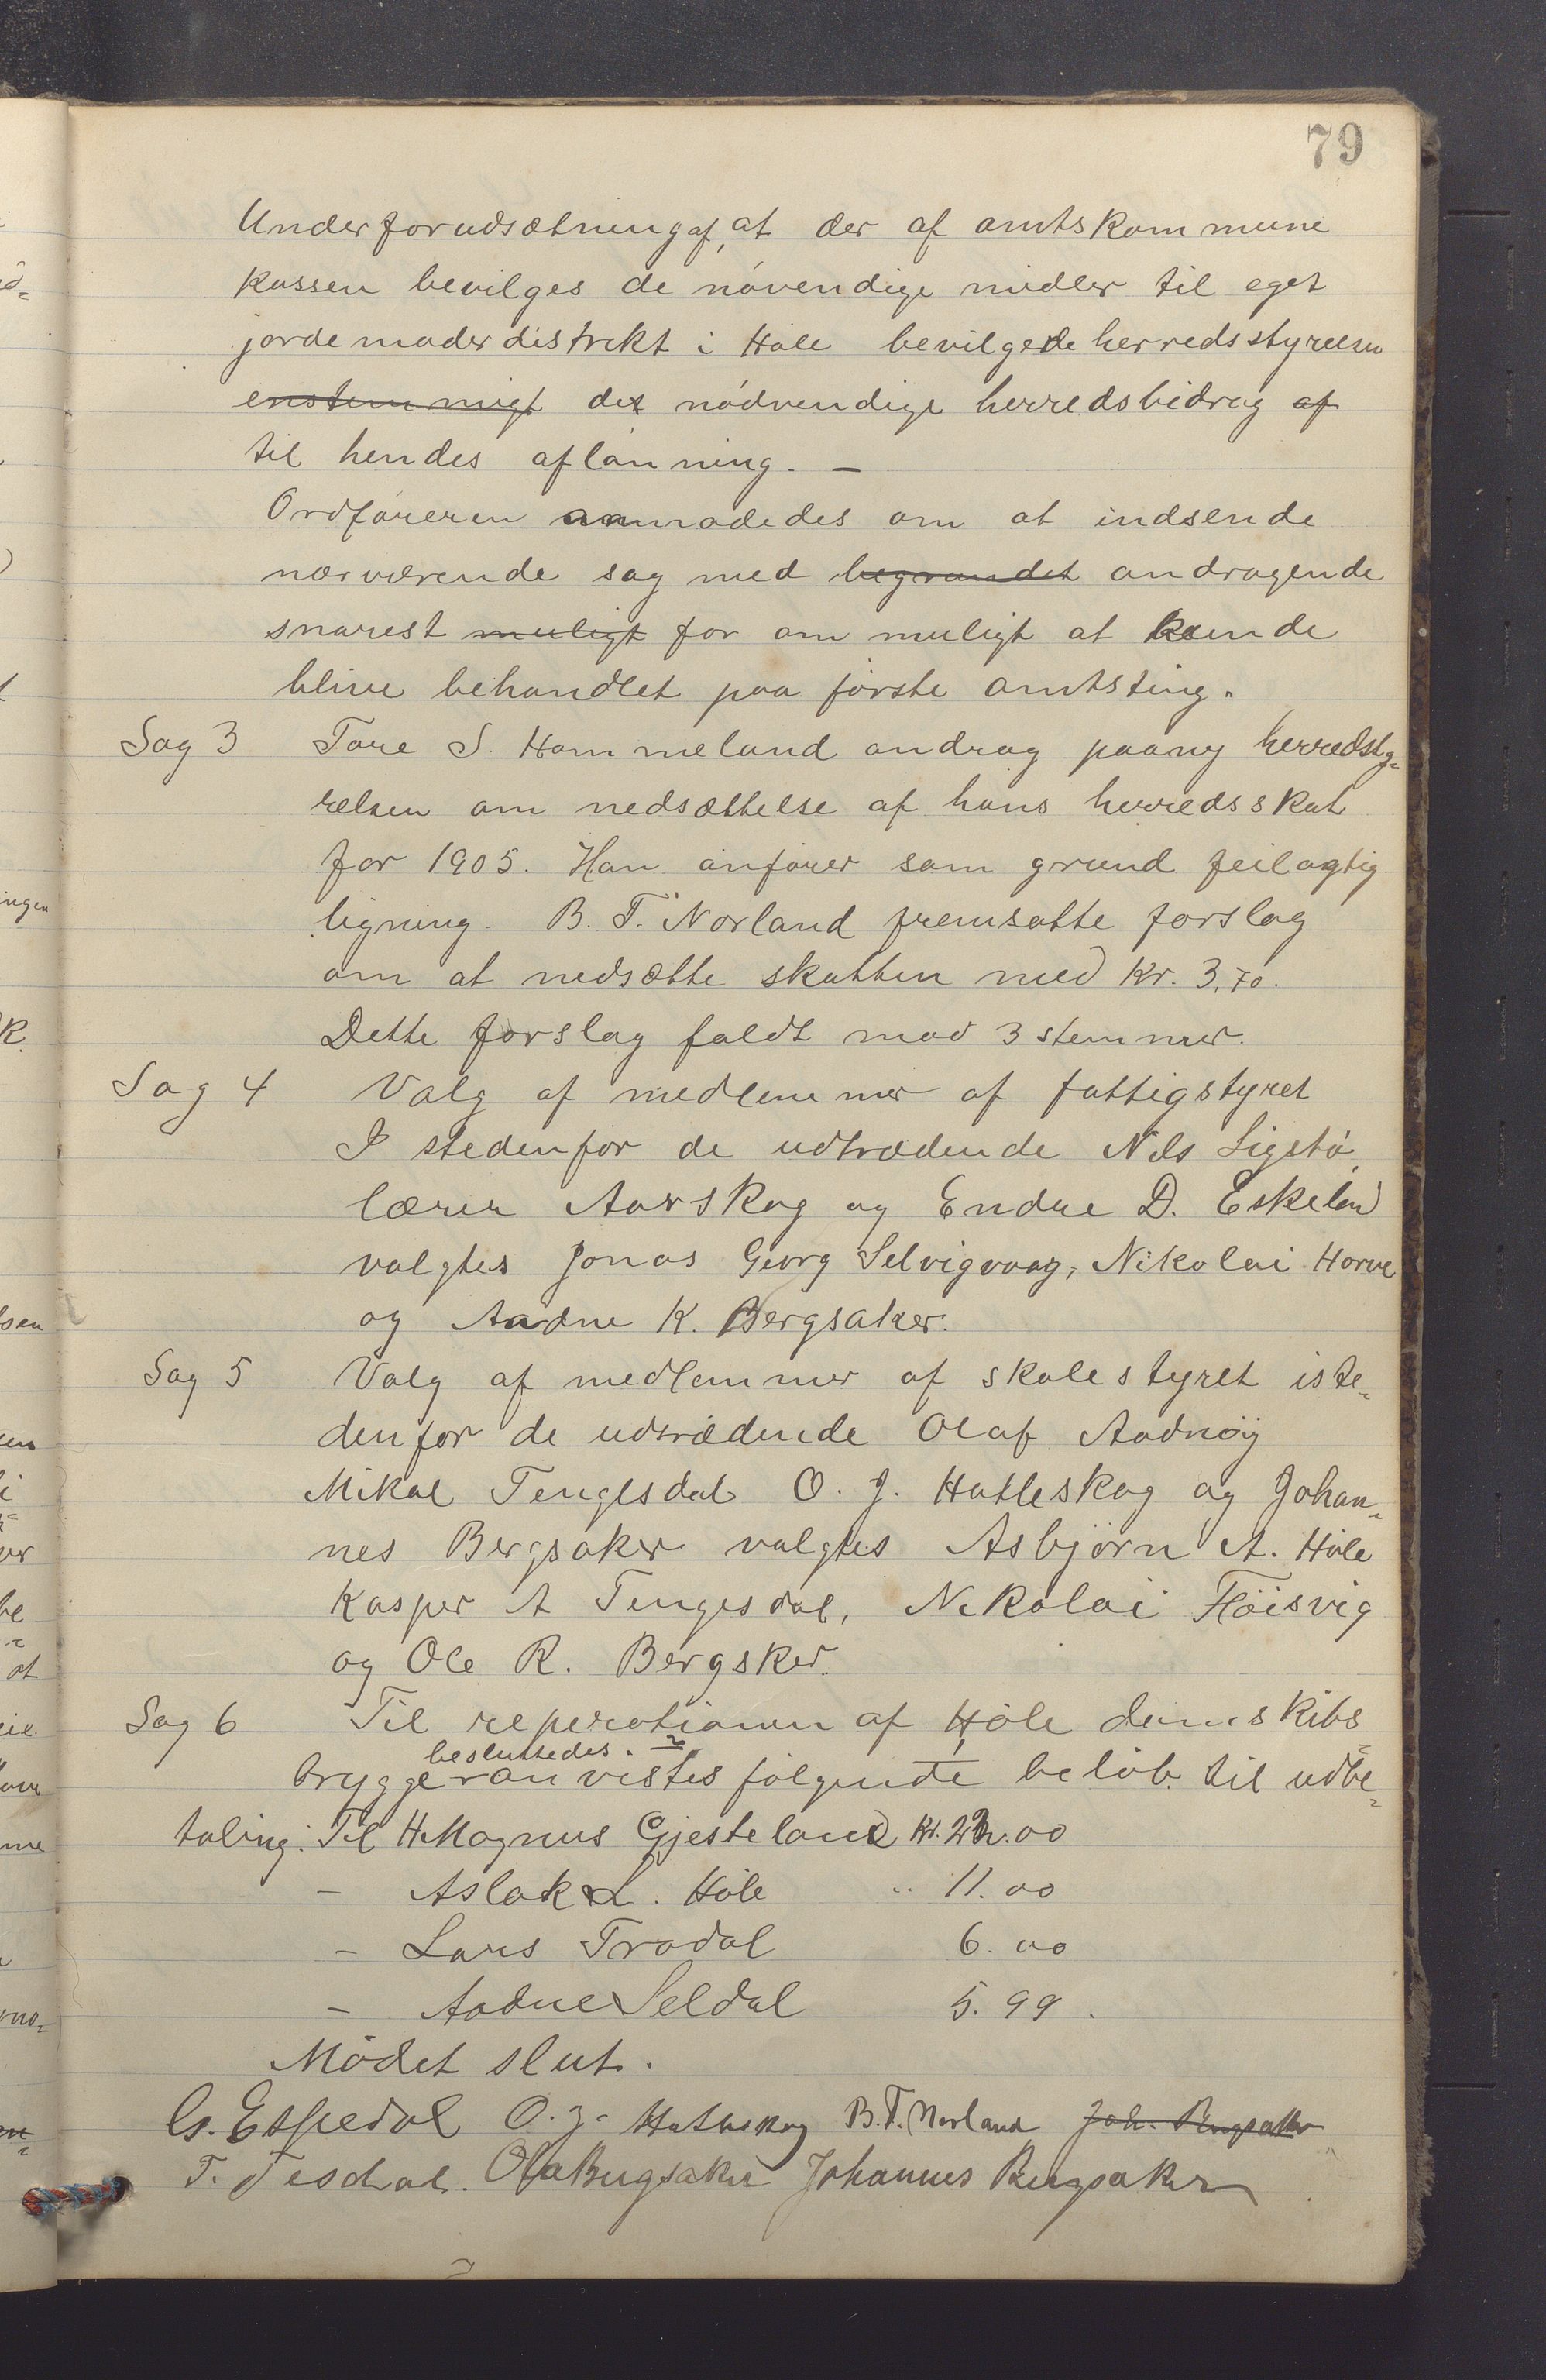 79
Under forudsætning af, at der af amtskommune
kassen bevilges de nøvendige midler til eget
jordemoderdistrikt i Høle bevilgede herredsstyrelsen
enstemmigt det nødvendige herredsbidrag af
til hendes aflønning. —
Ordføreren anmodedes om at indsende
nærværende sag med begrundet andragende
snarest muligt for om muligt at kunde
blive behandlet paa første amtsting.
Sag 3 Tore S. Hommeland androg paany herredsty-
relsen om nedsættelse af hans herredsskat
for 1905. Han anfører som grund feilagtig
ligning. B. T. Norland fremsatte forslag
om at nedsætte skatten med kr. 3,70.
Dette forslag faldt mod 3 stemmer.
Sag 4 Valg af medlemmer af fattigstyret
I stedenfor de udtrædende Nils Ligstø,
lærer Aarskog og Endre D. Eskeland
valgtes Jonas Georg Selvigvaag, Nikolai Horve
og Aadne K. Bergsaker.
Sag 5 Valg af medlemmer af skolestyret iste-
denfor de udtrædende Olaf Aadnøy
Mikal Tengesdal O. J. Hatleskog og Johan-
nes Bergsaker valgtes Asbjørn A. Høle
Kasper A Tengesdal, Nikolai Fløisvig
og Ole R. Bergsker.
Sag 6 Til reperationen af Høle damskibs
besluttedes.
brygge anvistes følgende beløb til udbe-
taling: Til H Magnus Gjesteland Kr. 22.00
– Aslak L. Høle " 11.00
– Lars Trodal 6.00
– Aadne Seldal 5.99.
Mødet slut.
G. Espedal O. J. Hatleskog B. T. Norland Joh. Bergsaker
T. Tesdal. Ola Bergsaker Johannes Bergsaker